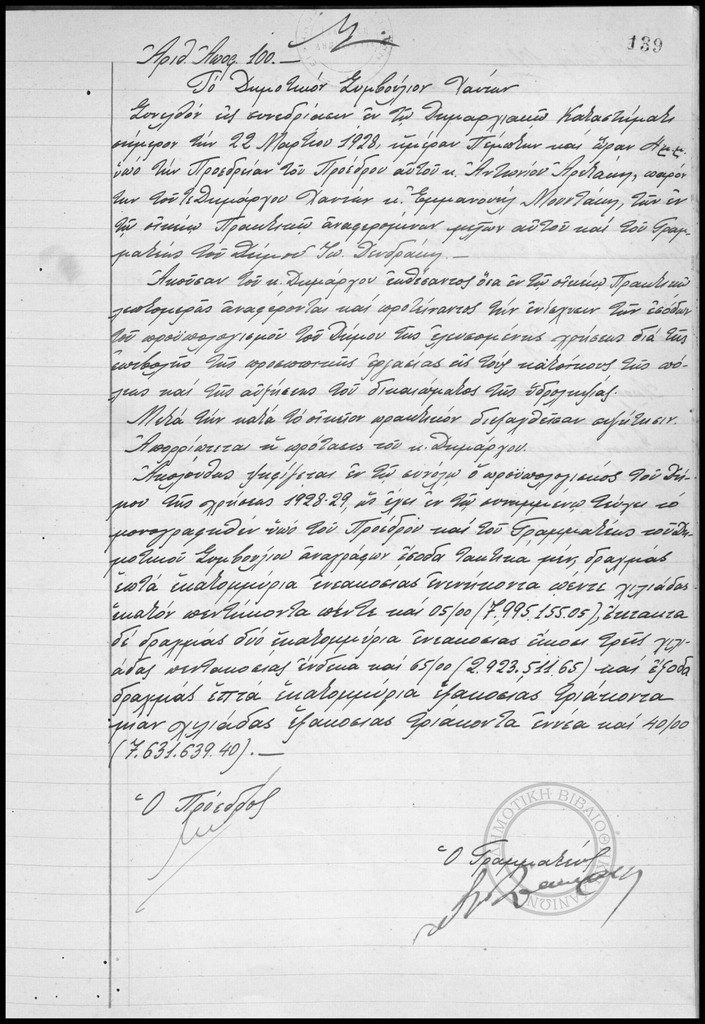 139
Ἀριθ. Ἀποφ. 100.—
Τό Δημοτικόν Συμβούλιον Χανίων
Συνελθόν εἰς συνεδρίασιν ἐν τῷ Δημαρχιακῷ Καταστήματι
σήμερον τήν 22 Μαρτίου 1928, ἡμέραν Πέμπτην καί ὥραν
ὑπό τήν Προεδρείαν τοῦ Προέδρου αὐτοῦ κ. Ἀντωνίου, παρόν
των τοῦ τε Δημάρχου Χανίων κ. Ἐμμανουήλ Μουντάκη, τῶν ἐν
τῷ οἰκείῳ Πρακτικῷ ἀναφερομένων μελῶν αὐτοῦ καί τοῦ Γραμ-
ματέως τοῦ Δήμου Ἰω. Δενδράκη.—
Ἀκοῦσαν τοῦ κ. Δημάρχου ἐκθέσαντος ὅσα ἐν τῷ οἰκείῳ Πρακτικῷ
λεπτομερῶς ἀναφέρονται καί προτείναντος τήν ἐνίσχυσιν τῶν ἐσόδων
τοῦ προϋπολογισμοῦ τοῦ Δήμου τῆς ἐλευσομένης χρήσεως διά τῆς
ἐπιβολῆς τῆς προσωπικῆς ἐργασίας εἰς τούς κατοίκους τῆς πό-
λεως καί τῆς αὐξήσεως τοῦ δικαιώματος τῆς ὑδροληψίας.
Μετά τήν κατά τό οἰκεῖον πρακτικόν διεξαχθεῖσαν συζήτησιν.
Ἀπορρίπτεται ἡ πρότασις τοῦ κ. Δημάρχου.
Ἀκολούθως ψηφίζεται ἐν τῷ συνόλῳ ὁ προϋπολογισμός τοῦ Δή-
μου τῆς χρήσεως 1928-29, ὡς ἔχει ἐν τῷ συνημμένῳ τεύχει τῷ
μονογραφηθέν ὑπό τοῦ Προέδρου καί τοῦ Γραμματέως τοῦ Δη-
μοτικοῦ Συμβουλίου ἀναγράφων ἔσοδα τακτικά μέν δραχμάς
ἑπτά ἑκατομμύρια ἐνεακοσίας ἐνενήκοντα πέντε χιλιάδας
ἑκατόν πεντήκοντα πέντε καί 05/00 (7.995.155.05), ἔκτακτα
δέ δραχμάς δύο ἑκατομμύρια ἐνεακοσίας εἴκοσι τρεῖς χιλι-
άδας πεντακοσίας ἕνδεκα καί 65/00 (2.923.511.65) καί ἔξοδα
δραχμάς ἑπτά ἑκατομμύρια ἑξακοσίας τριάκοντα
μίαν χιλιάδας ἑξακοσίας τριάκοντα ἐννέα καί 40/00
(7.631.639.40).—
Ὁ Πρόεδρος
Ὁ Γραμματεύς
ΔΗΜΟΤΙΚΗ ΒΙΒΛΙΟΘΗΚΗ ΧΑΝΙΩΝ